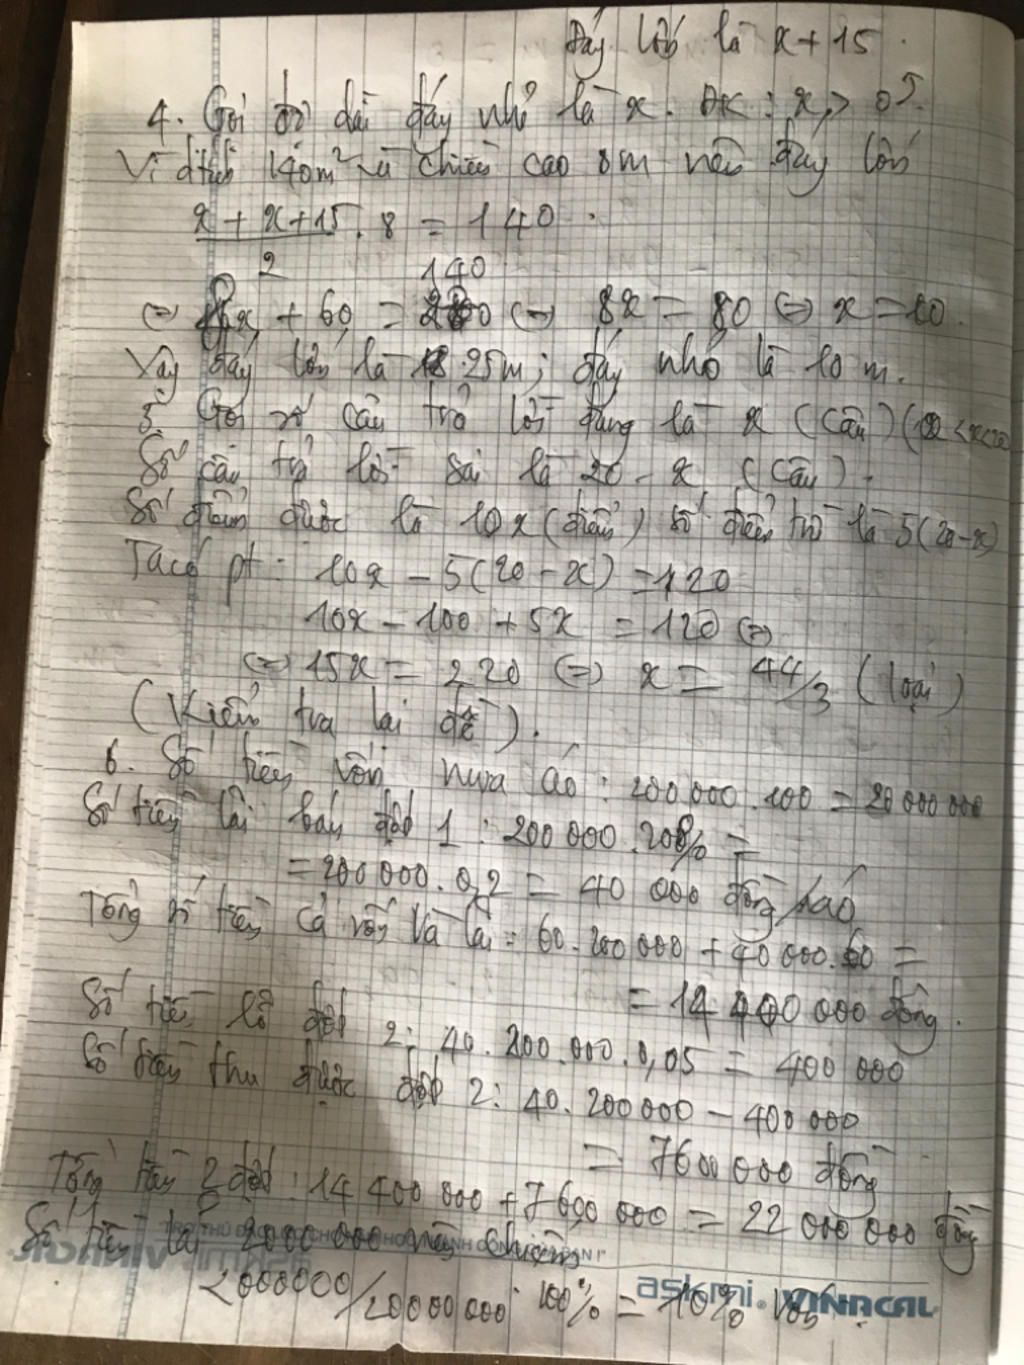 Đáy lớn là x + 15.
4. Gọi độ dài đáy nhỏ là x. ĐK: x > 0
Vì dtích 140m² và chiều cao 8m nên đáy lớn
x + x + 15 . 8 = 140
2
140
⇔ x + 60 = ⇔ 8x = 80 ⇔ x = 10.
Vậy đáy lớn là 25m; đáy nhỏ là 10 m.
5. Gọi số câu trả lời đúng là x (câu)
Số câu trả lời sai là 20 - x (câu).
Số điểm được là 10x (điểm) số điểm trừ là 5(20-x)
Ta có pt: 10x - 5(20 - x) = 120
10x - 100 + 5x = 120 ⇔
⇔ 15x = 220 ⇔ x = 44/3 (loại)
(Kiểm tra lại đề).
6. Số tiền vốn mua áo: 200 000 . 100 = 20 000 000
Số tiền lãi bán đợt 1: 200 000 . 20% =
= 200 000 . 0,2 = 40 000 đồng/áo
Tổng số tiền cả vốn và lãi = 60. 200 000 + 40 000. 60 =
= 14 400 000 đồng.
Số tiền lỗ đợt 2: 40. 200.000. 0,05 = 400 000
Số tiền thu được đợt 2: 40. 200000 - 400 000
= 7600 000 đồng
Tổng tiền 2 đợt: 14 400 000 + 7 600 000 = 22 000 000 đồng
Số tiền lãi 2000 000 này chiếm
2000000/20000000 . 100% = 10% vốn.
askmi. VINACAL